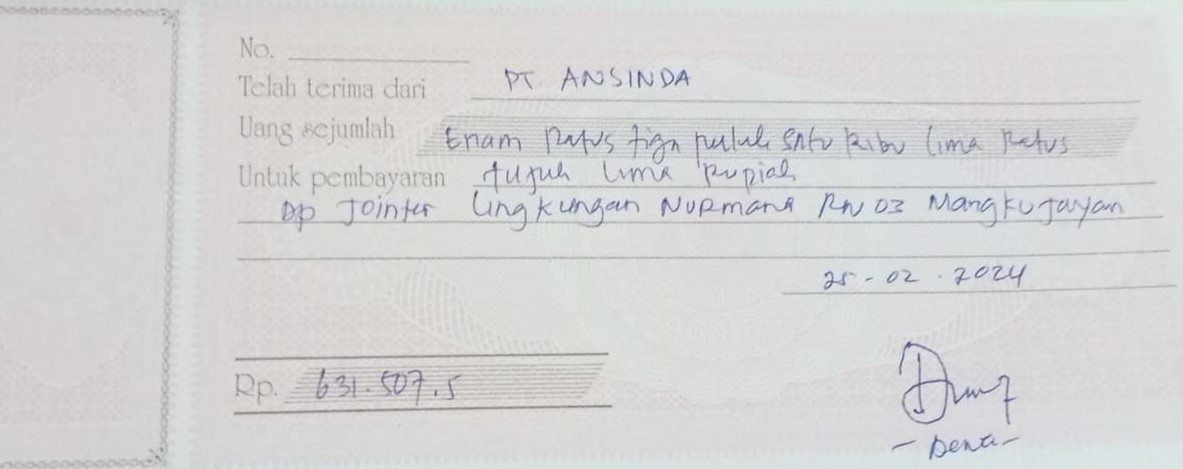 No.
Telah terima dari PT. ANSINDA
Uang sejumlah Enam Ratus tiga puluh satu Ribu lima Ratus
Untuk pembayaran tujuh lima Rupiah
Dp Jointer lingkungan NURmana RW 03 Mangkujayan
25-02-2024
Rp. 631.507.5
- Denta -